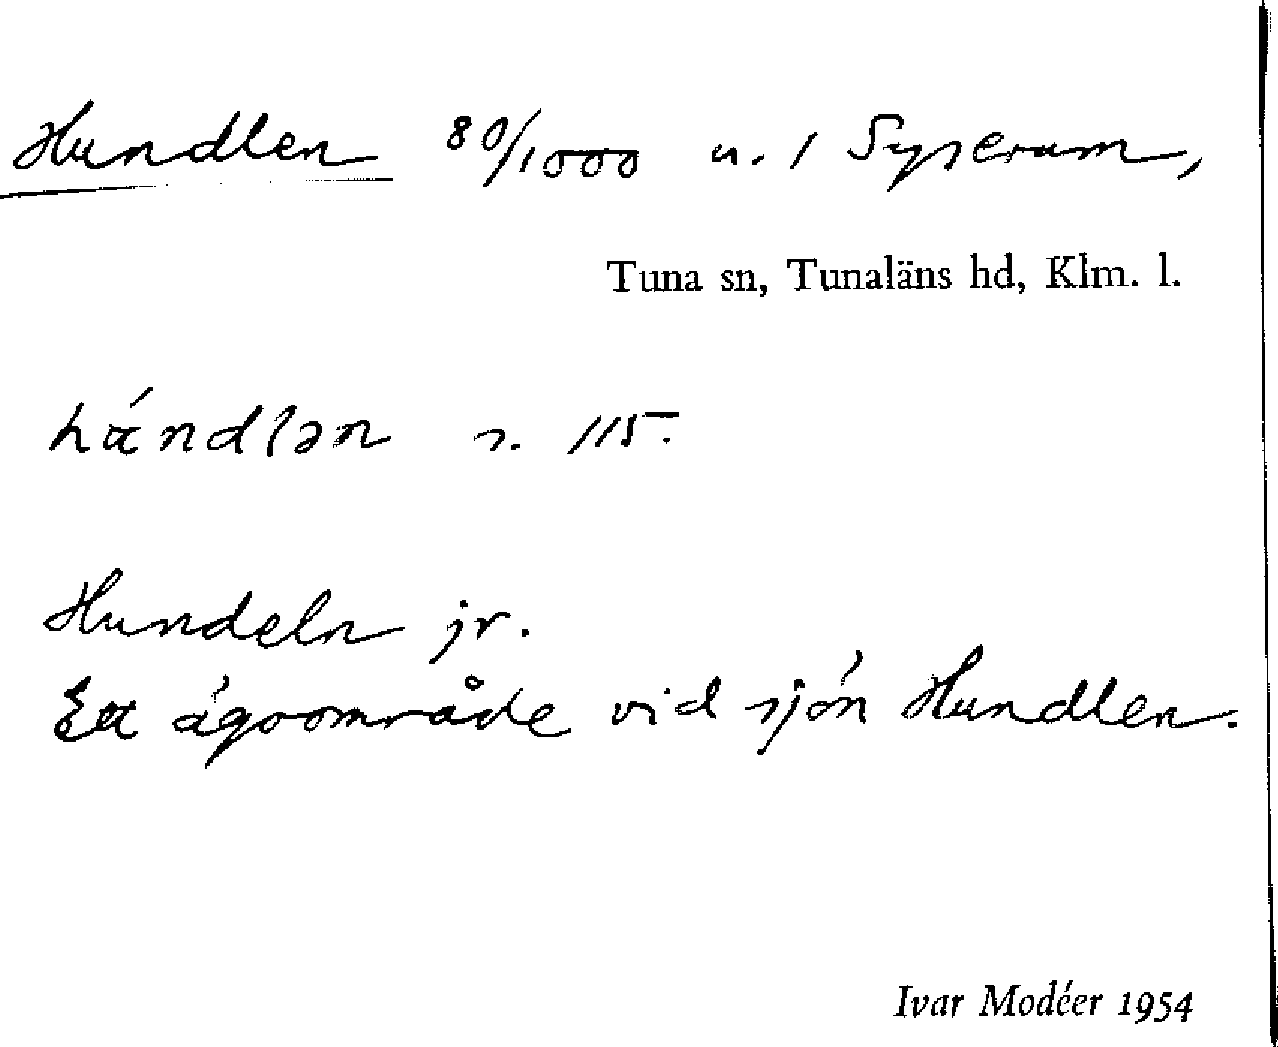 Hundlen 80/1000 n. 1 Syserum,
Tuna sn, Tunaläns hd, Klm. l.
hándlən s. 115.
Hundeln jr.
Ett ägoområde vid sjön Hundlen.
Ivar Modéer 1954